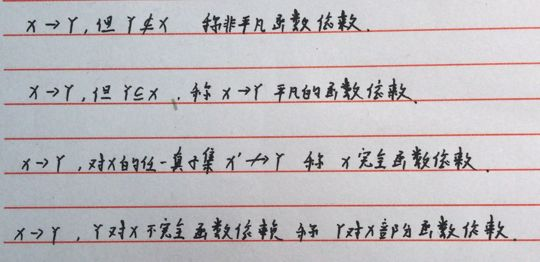 X→Y，但 Y⊈X 称非平凡函数依赖.
X→Y，但 Y⊆X，称 X→Y 平凡的函数依赖.
X→Y，对X的任一真子集 X'↛Y 称 X完全函数依赖.
X→Y，Y对X不完全函数依赖 称 Y对X部分函数依赖.